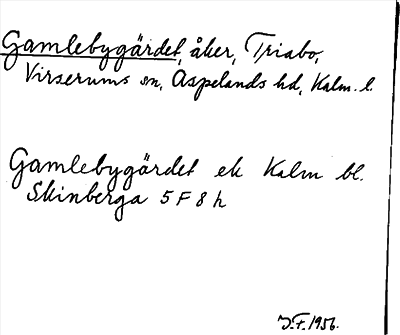 Gamlebygärdet, åker, Triabo,
Virserums sn, Aspelands hd, Kalm. l.
Gamlebygärdet ek Kalm bl.
Skinberga 5 F 8 h
J.F. 1956.